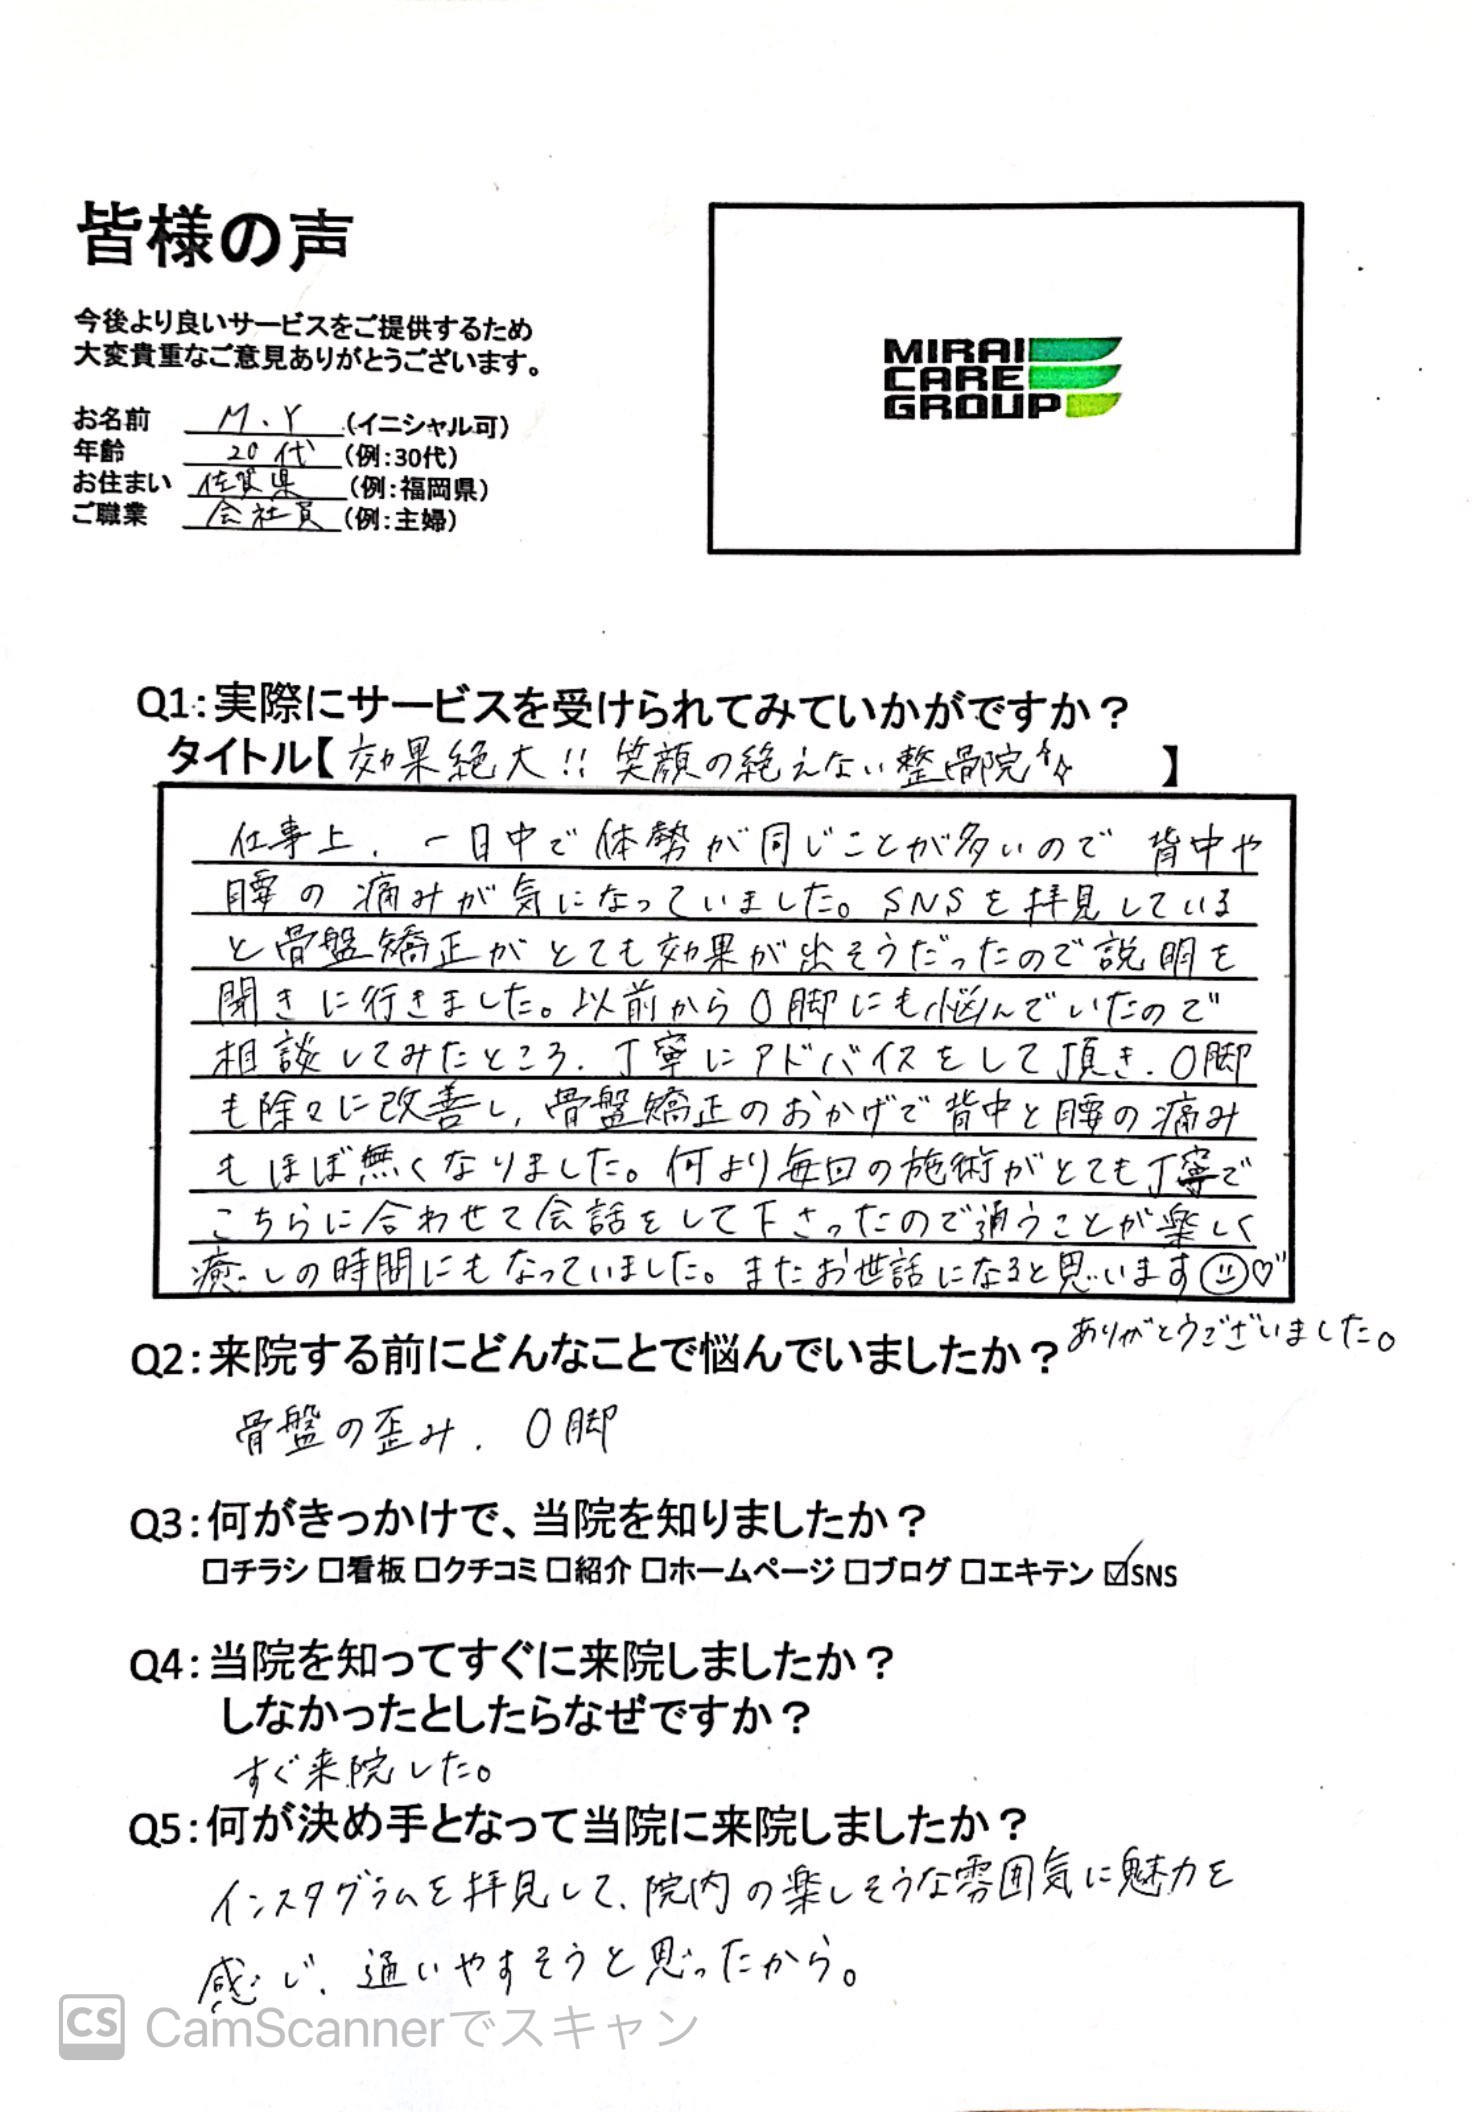 皆様の声
今後より良いサービスをご提供するため
大変貴重なご意見ありがとうございます。
お名前 M.Y (イニシャル可)
年齢 20代 (例:30代)
お住まい 佐賀県 (例:福岡県)
ご職業 会社員 (例:主婦)
MIRAI
CARE
GROUP
Q1:実際にサービスを受けられてみていかがですか?
タイトル【効果絶大!! 笑顔の絶えない整骨院】
仕事上、一日中で体勢が同じことが多いので 背中や
腰の痛みが気になっていました。SNSを拝見している
と骨盤矯正がとても効果が出そうだったので説明を
聞きに行きました。以前からO脚にも悩んでいたので
相談してみたところ、丁寧にアドバイスをして頂き、O脚
も除々に改善し、骨盤矯正のおかげで背中と腰の痛み
もほぼ無くなりました。何より毎回の施術がとても丁寧で
こちらに合わせて会話をして下さったので通うことが楽しく
癒しの時間にもなっていました。またお世話になると思います☺♡
ありがとうございました。
Q2:来院する前にどんなことで悩んでいましたか?
骨盤の歪み、O脚
Q3:何がきっかけで、当院を知りましたか?
□チラシ □看板 □クチコミ □紹介 □ホームページ □ブログ □エキテン ☑SNS
Q4:当院を知ってすぐに来院しましたか?
しなかったとしたらなぜですか?
すぐ来院した。
Q5:何が決め手となって当院に来院しましたか?
インスタグラムを拝見して、院内の楽しそうな雰囲気に魅力を
感じ、通いやすそうと思ったから。
CS CamScannerでスキャン